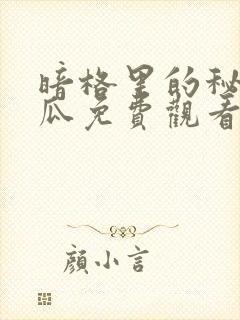 暗格里的秘
瓜免費觀看
顏小言